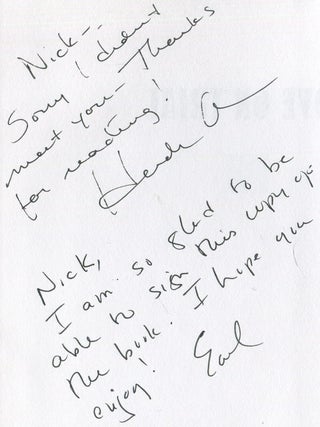 Nick--
Sorry I didn't
meet you- Thanks
for reading!
Nick,
I am so glad to be
able to sign this copy of
the book. I hope you
enjoy!
Earl